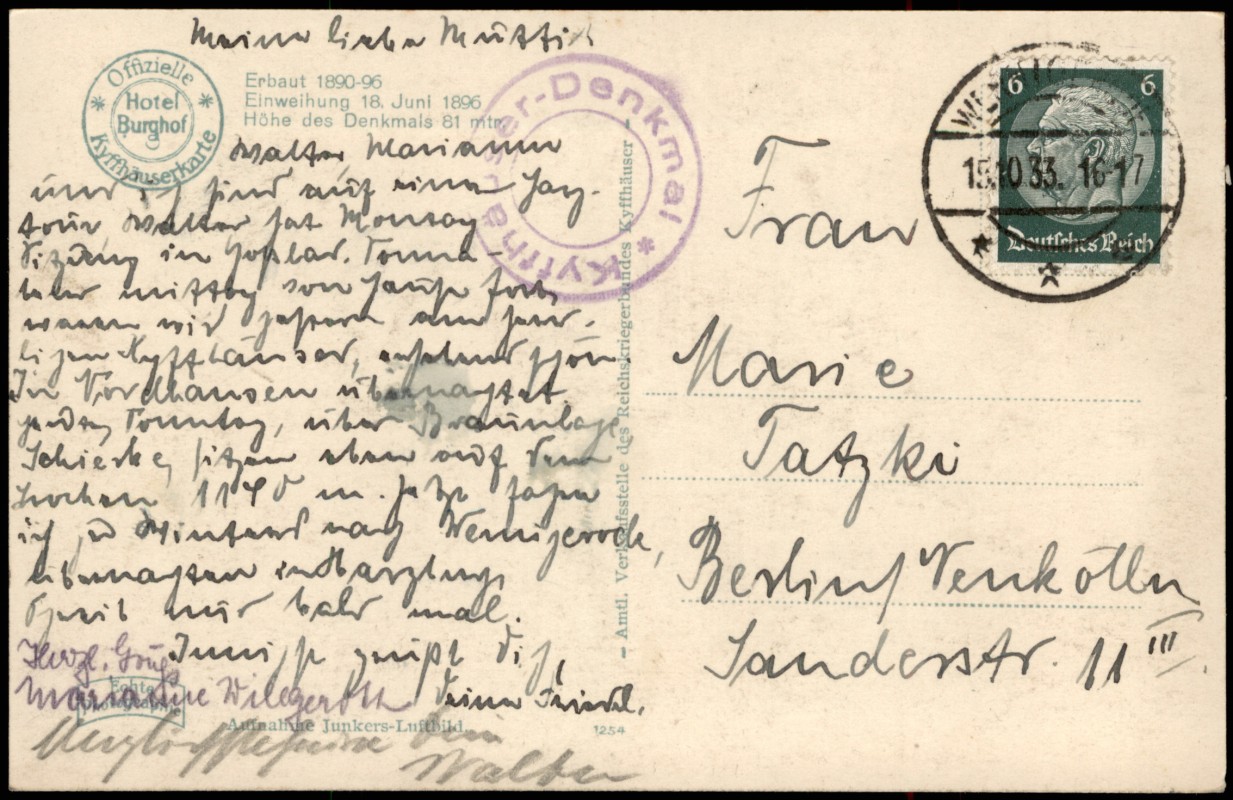 Meine liebe Mutti!
Offizielle
Hotel
Burghof
Kyffhäuserkarte
Erbaut 1890-96
Einweihung 18. Juni 1896
Höhe des Denkmals 81 mtr.
Kyffhäuser-Denkmal
Walter, Marianne
und ich sind auf einer Harz-
tour, Walter hat Montag
Sitzung in Goslar. Sonna-
bend mittag von Hause fort,
waren wir gestern am herr-
lichen Kyffhäuser, schön
In Nordhausen übernachtet.
Sonntag, über Braunlage
Schierke, sitzen eben auf dem
Brocken 1140 m. Jetzt
ich nach Wernigerode,
übernachten in Harzburg.
Schreib mir bald mal.
Innigst grüßt Dich,
Deine Friedl.
Herzl. Grüße
Marianne
Echte
Photographie
Aufnahme Junkers-Luftbild.
1254
Walter
- Amtl. Verkaufsstelle des Reichskriegerbundes Kyffhäuser -
15.10.33. 16-17
6 6
Deutsches Reich
Frau
Marie
Tatzki
Berlin/Neukölln
Sanderstr. 11 III